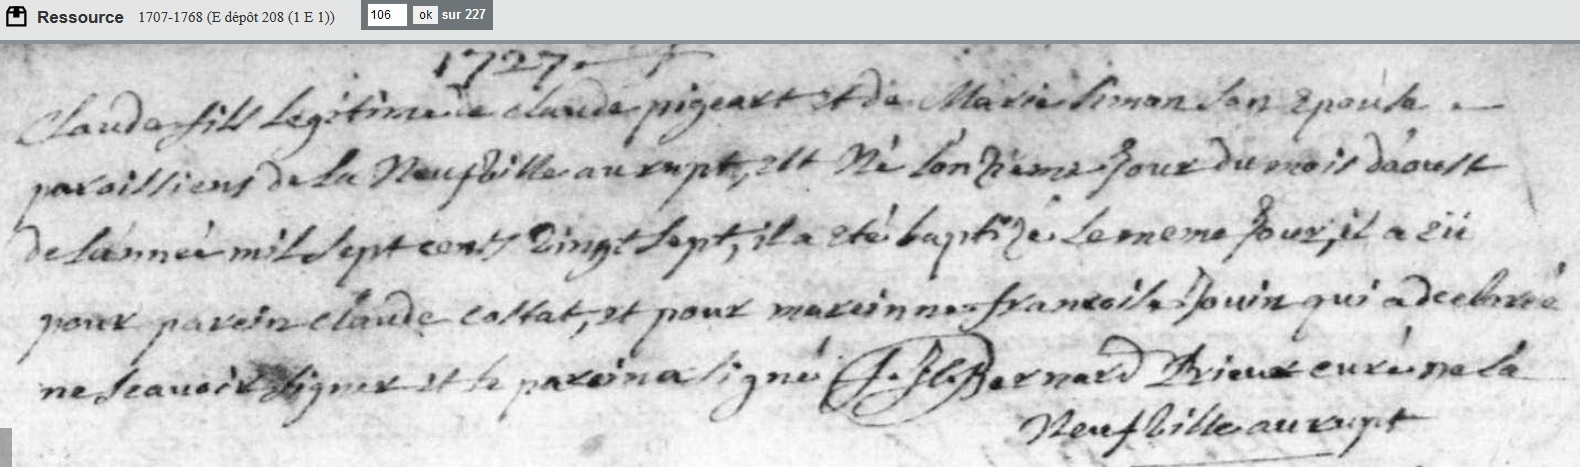 Ressource 1707-1768 (E dépôt 208 (1 E 1)) 106 ok sur 227
1727
Claude fils legitime de claude pigeart et de Marie simon son epouse
paroissiens de la Neufville au rupt, est né l'onzième jour du mois d'áoust
de l'année mil sept cents vingt sept, il a eté baptizé le meme jour, il a eü
pour parein claude costat, et pour mareinne francoise Jouin qui a declareé
ne scauoir signer et le parein a signé Bernard Prieur curé de la
Neufville au rupt